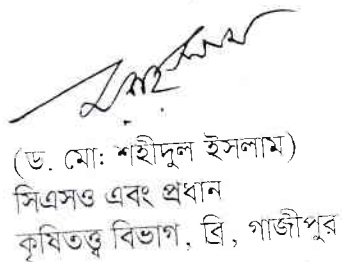 (ড. মো: শহীদুল ইসলাম)
সিএসও এবং প্রধান
কৃষিতত্ত্ব বিভাগ, ব্রি, গাজীপুর